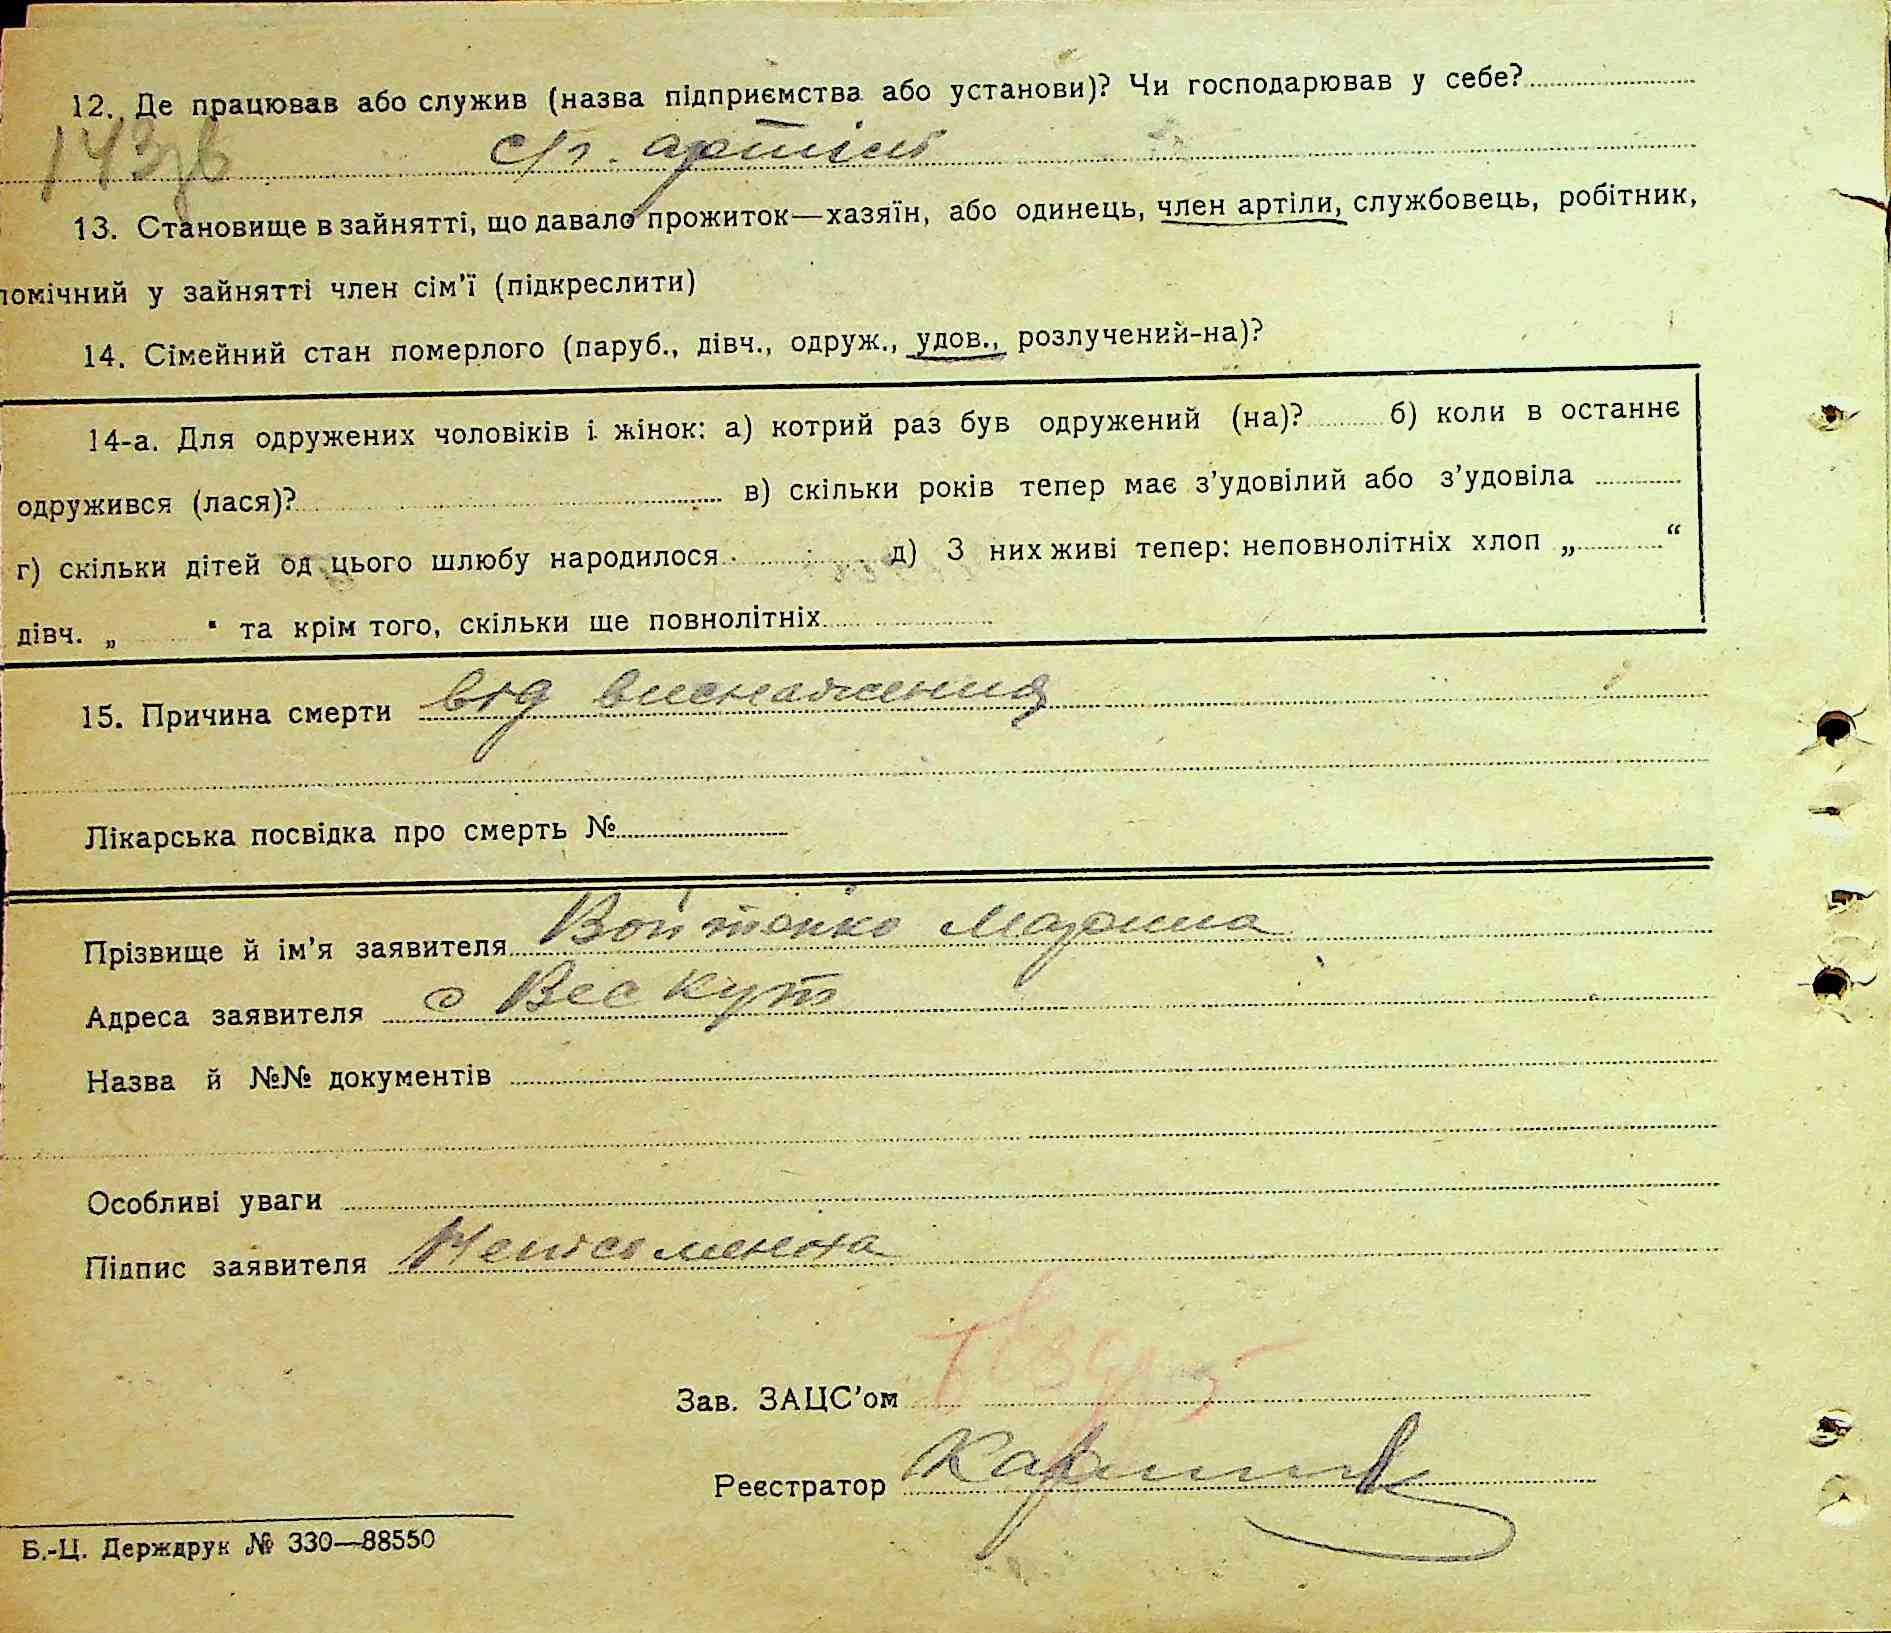 12. Де працював або служив (назва підприємства або установи)? Чи господарював у себе?
143зв с/г. артілі
13. Становище в зайнятті, що давало прожиток—хазяїн, або одинець, член артіли, службовець, робітник,
помічний у зайнятті член сім’ї (підкреслити)
14. Сімейний стан померлого (паруб., дівч., одруж., удов., розлучений-на)?
14-а. Для одружених чоловіків і жінок: а) котрий раз був одружений (на)? б) коли в останнє
одружився (лася)? в) скільки років тепер має з’удовілий або з’удовіла
г) скільки дітей од цього шлюбу народилося д) З них живі тепер: неповнолітніх хлоп „ “
дівч. „ “ та крім того, скільки ще повнолітніх
15. Причина смерти від виснаження
Лікарська посвідка про смерть №
Прізвище й ім’я заявителя Войтенко Марина
Адреса заявителя с Вес Кут
Назва й №№ документів
Особливі уваги
Підпис заявителя Неписменна
Зав. ЗАЦС’ом
Реєстратор
Б.-Ц. Держдрук № 330—88550